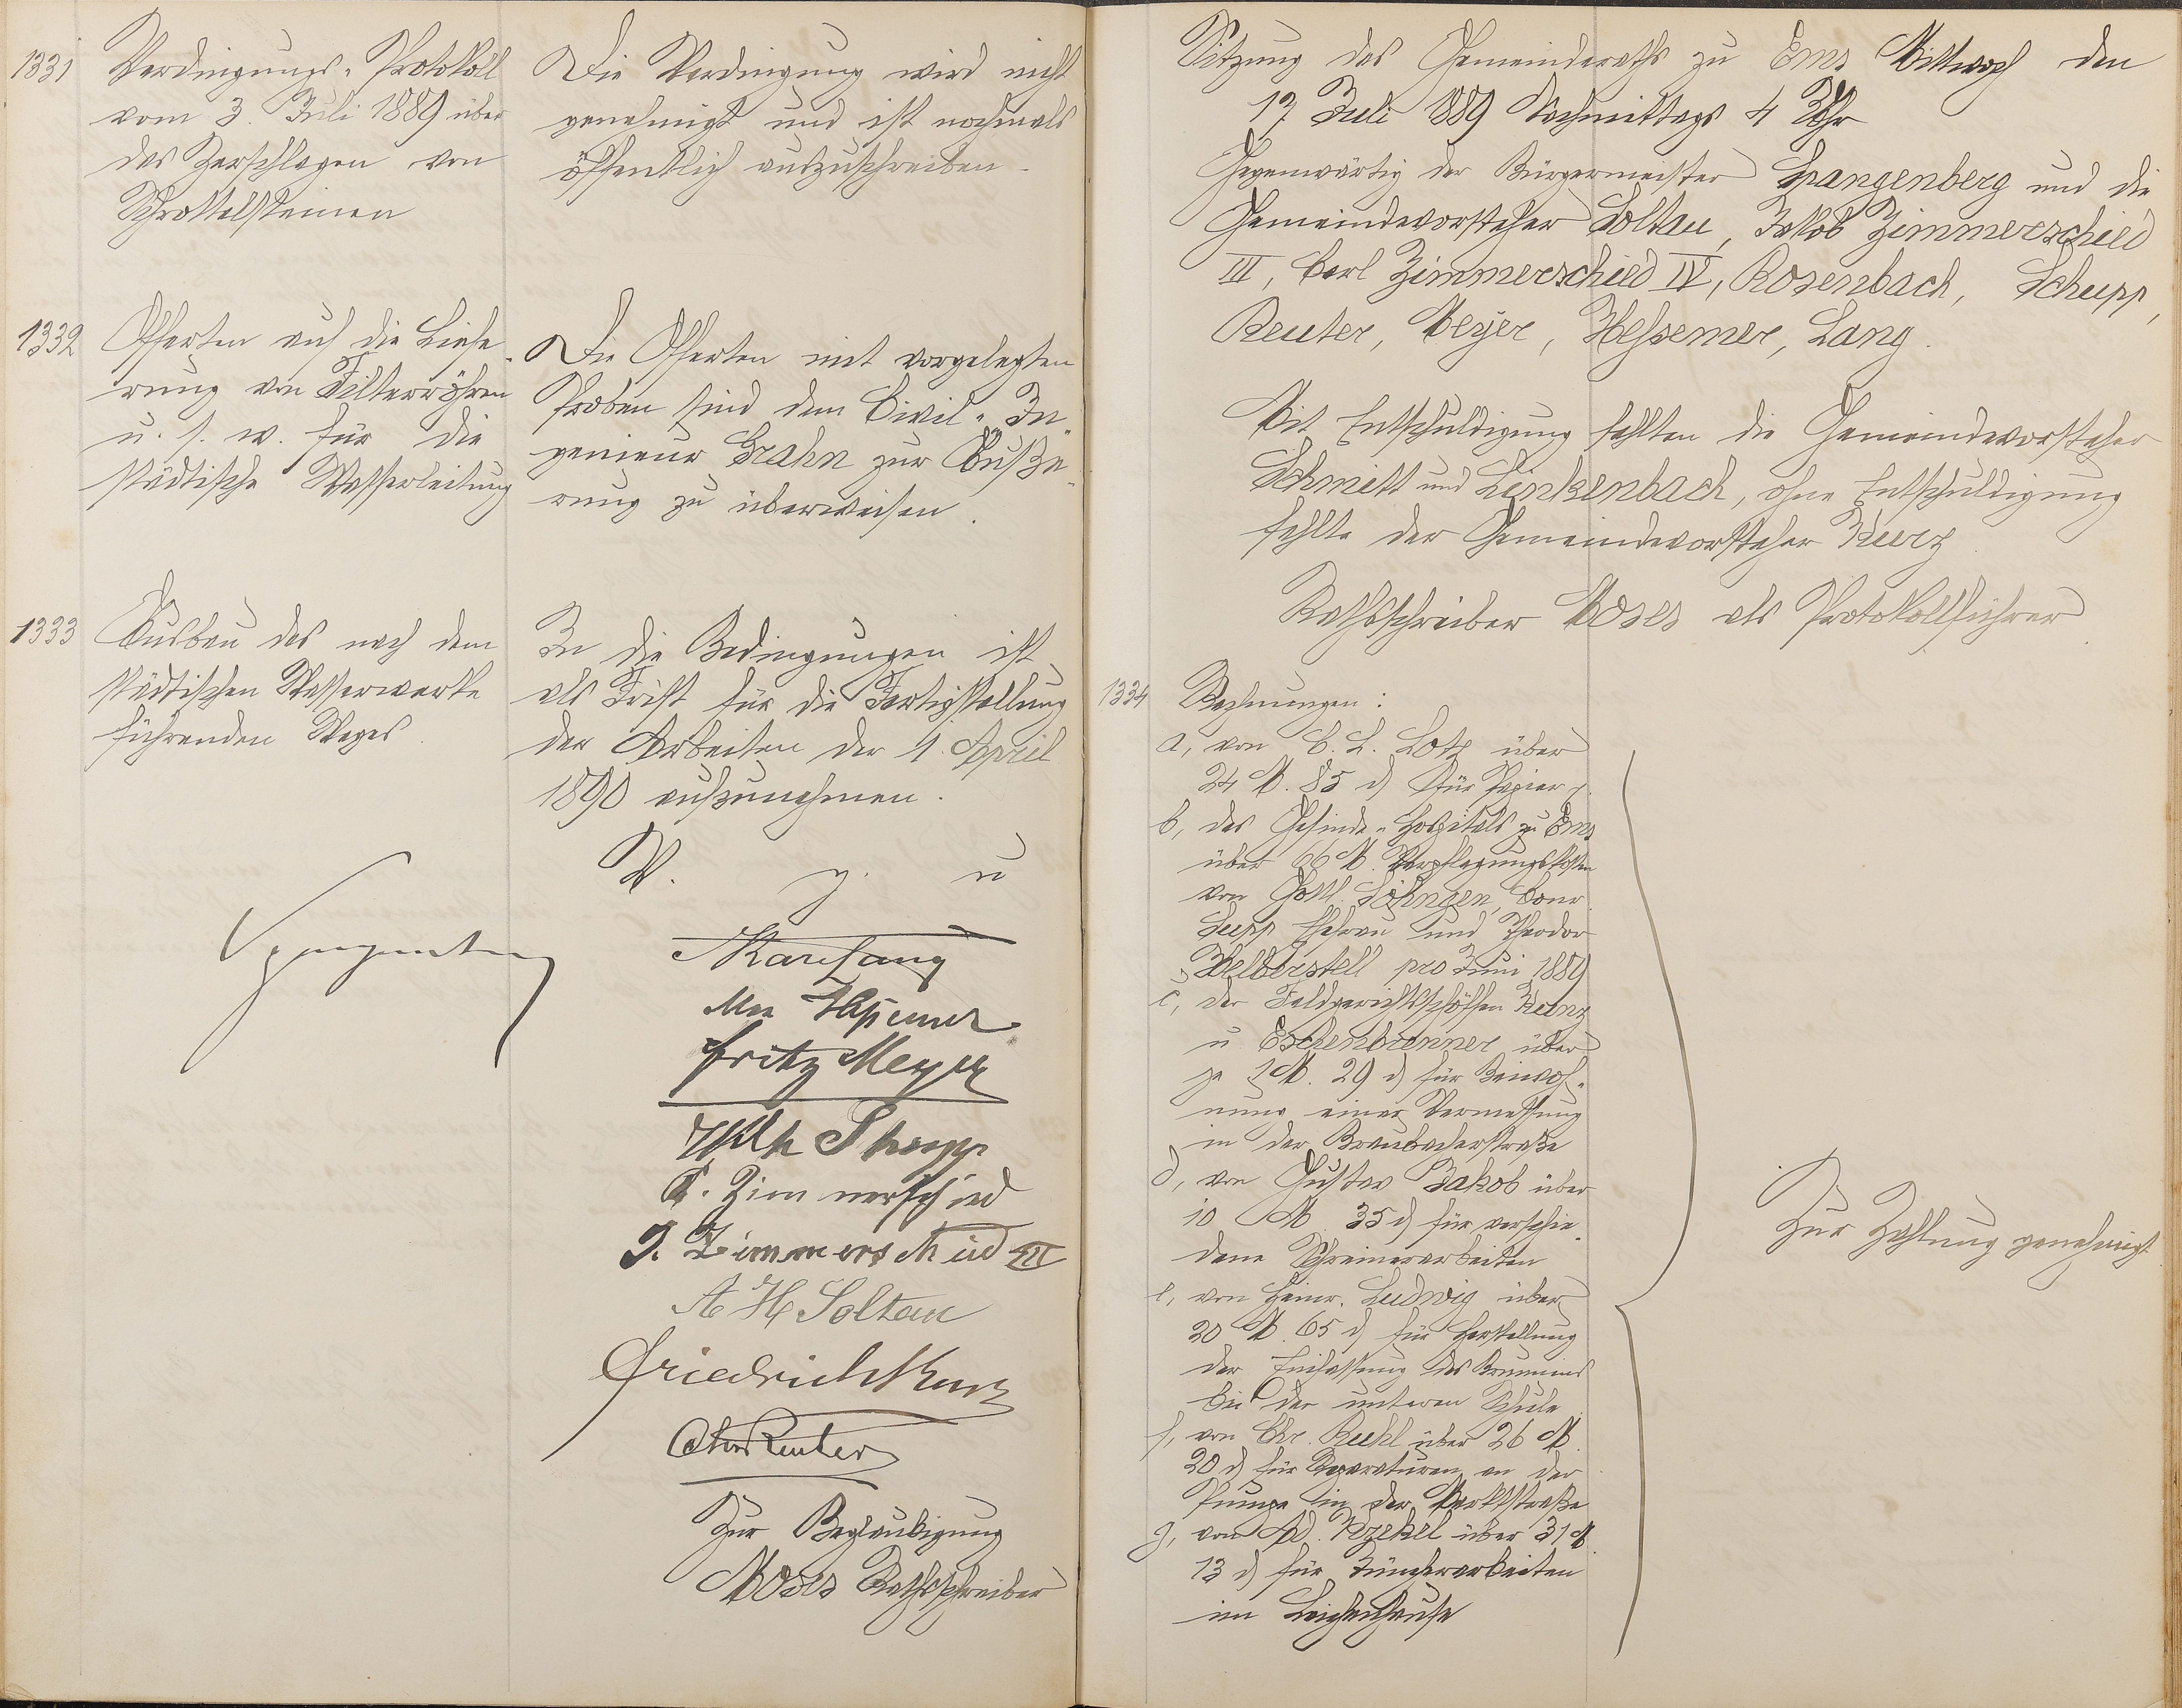 1331
Verdingungs-Protokoll
vom 3. Juli 1889 über
das Zerschlagen von
Schrottelsteinen
Die Verdingung wird nicht
genehmigt und ist nochmals
öffentlich auszuschreiben.
1332
Offerten auf die Liefe-
rung von Filterröhren
u. s. w. für die
städtische Wasserleitung
Die Offerten mit vorgelegten
Proben sind dem Civil-In-
genieur Grahn zur Äuße-
rung zu überweisen.
1333
Ausbau des nach dem
städtischen Wasserwerke
führenden Weges.
In die Bedingungen ist
als Frist für die Fertigstellung
der Arbeiten der 1. April
1890 aufzunehmen.
V. g. u
Spangenberg
Karl Lang
Hessemer
Fritz Meyer
Wilh Schupp
C. Zimmerschied
J. Zimmerschied III
A H Soltau
Friedrich Kurz
Chr Reuter
Zur Beglaubigung
Moses Rathsschreiber
Sitzung des Gemeinderaths zu Ems Mittwoch den
17 Juli 1889 Nachmittags 4 Uhr
Gegenwärtig der Bürgermeister Spangenberg und die
Gemeindevorsteher Soltau, Jakob Zimmerschied
III, Carl Zimmerschied IV, Rosenbach, Schupp,
Reuter, Meyer, Hessemer, Lang.
Mit Entschuldigung fehlten die Gemeindevorsteher
Schmitt und Linkenbach, ohne Entschuldigung
fehlte der Gemeindevorsteher Kurz
Rathsschreiber Moses als Protokollführer
1334
Rechnungen:
a, von C. L. Lotz über
24 M. 85 d für Papier p.
b, des Gesinde-Hospitals zu Ems
über 66 M. Verpflegungskosten
von Gottl. Söhngen, Conr.
Supp Ehefrau und Theodor
Helberstell pro Juni 1889
c, der Feldgerichtsschöffen Kunz
u Eschenbrenner über
je 2 M. 29 d für Beiwoh-
nung einer Vermessung
in der Braubacherstraße
d, von Gustav Jakob über
10 M 35 d für verschie-
dene Schreinerarbeiten
e, von Heinr. Ludwig über
20 M. 65 d für Herstellung
der Einfassung des Brunnens
bei der unteren Schule
f, von Chr. Ruhl über 26 M.
20 d für Reparaturen an der
Pumpe in der Marktstraße
g, von Ad. über 31 M.
13 d für Tüncherarbeiten
im Leichenhause
Zur Zahlung genehmigt